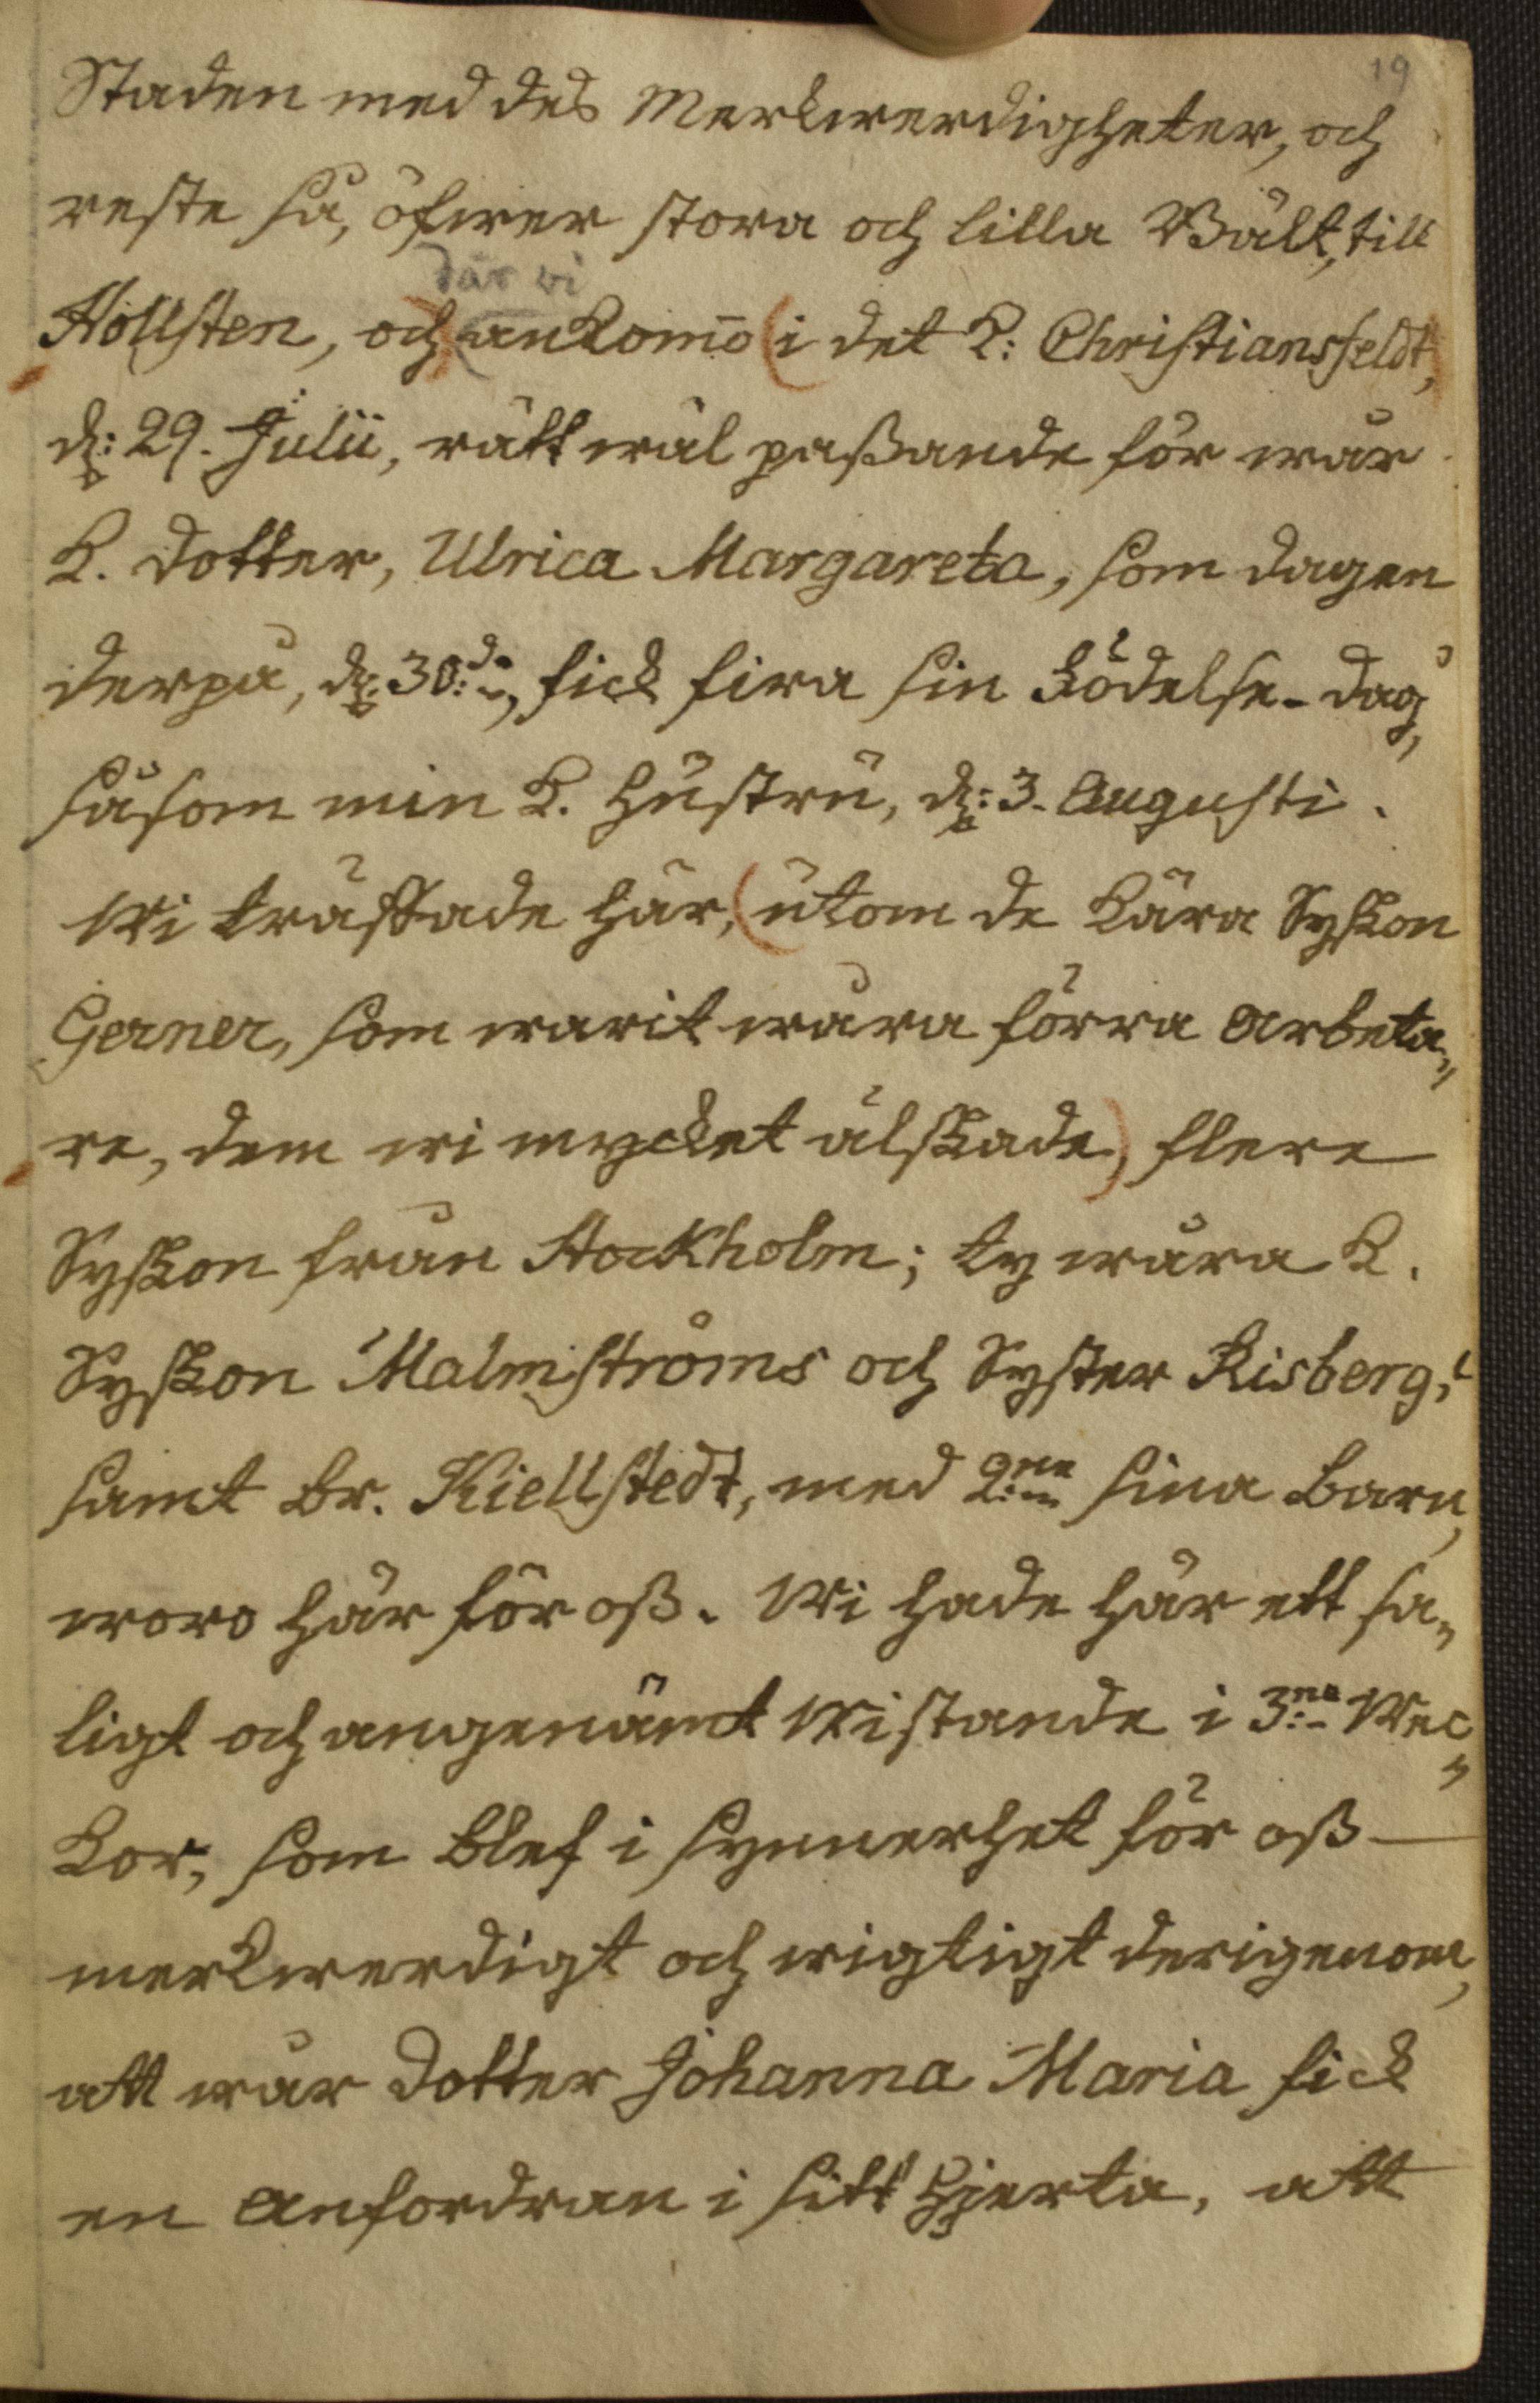 19
Staden med des Merkwerdigheter, och
reste så, öfwer stora och lilla Bält, till
där vi
Hollsten, och ankom̄o (i det K: Christiansfeldt,
d: 29. Julii, rätt wäl paßande för wår
K. Dotter, Ulrica Margareta, som dagen
derpå, d: 30:de, fick fira sin Födelse-dag,
såsom min K. Hustru, d: 3. Augusti.
Wi träffade här, (utom de Kära Syskon
Gerner, som warit wåra förra Arbeta„
re, dem wi mycket älskade) flere
Syskon från Stockholm; ty wåra K.
Syskon Malmströms och Syster Risberg,
samt Br. Kiellstedt, med 2:ne sina Barn,
woro här för oß. Wi hade här ett sa„
ligt och angenämt Wistande i 3:ne Wec„
kor, som blef i synnerhet för oß —
merkwerdigt och wigtigt derigenom,
att wår Dotter Johanna Maria fick
en Anfordran i sitt Hjerta, att